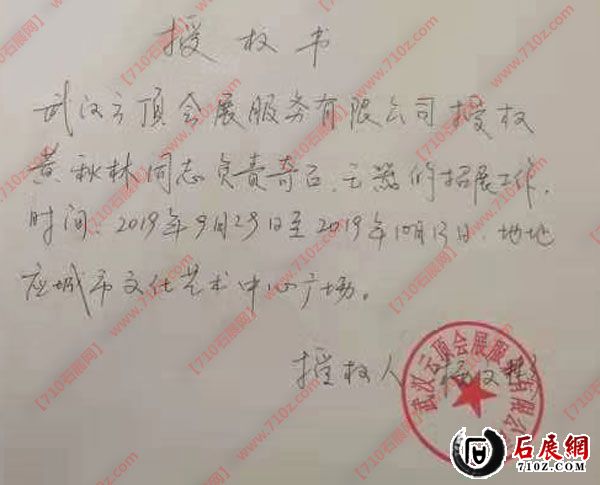 授权书
武汉云顶会展服务有限公司授权
黄秋林同志负责奇石、玉器的招展工作,
时间:2019年9月29日至2019年10月13日.场地
应城市文化艺术中心广场。
授权人
武汉云顶会展服务有限公司
石展網
710Z.COM
【710石展网】
www.710z.com